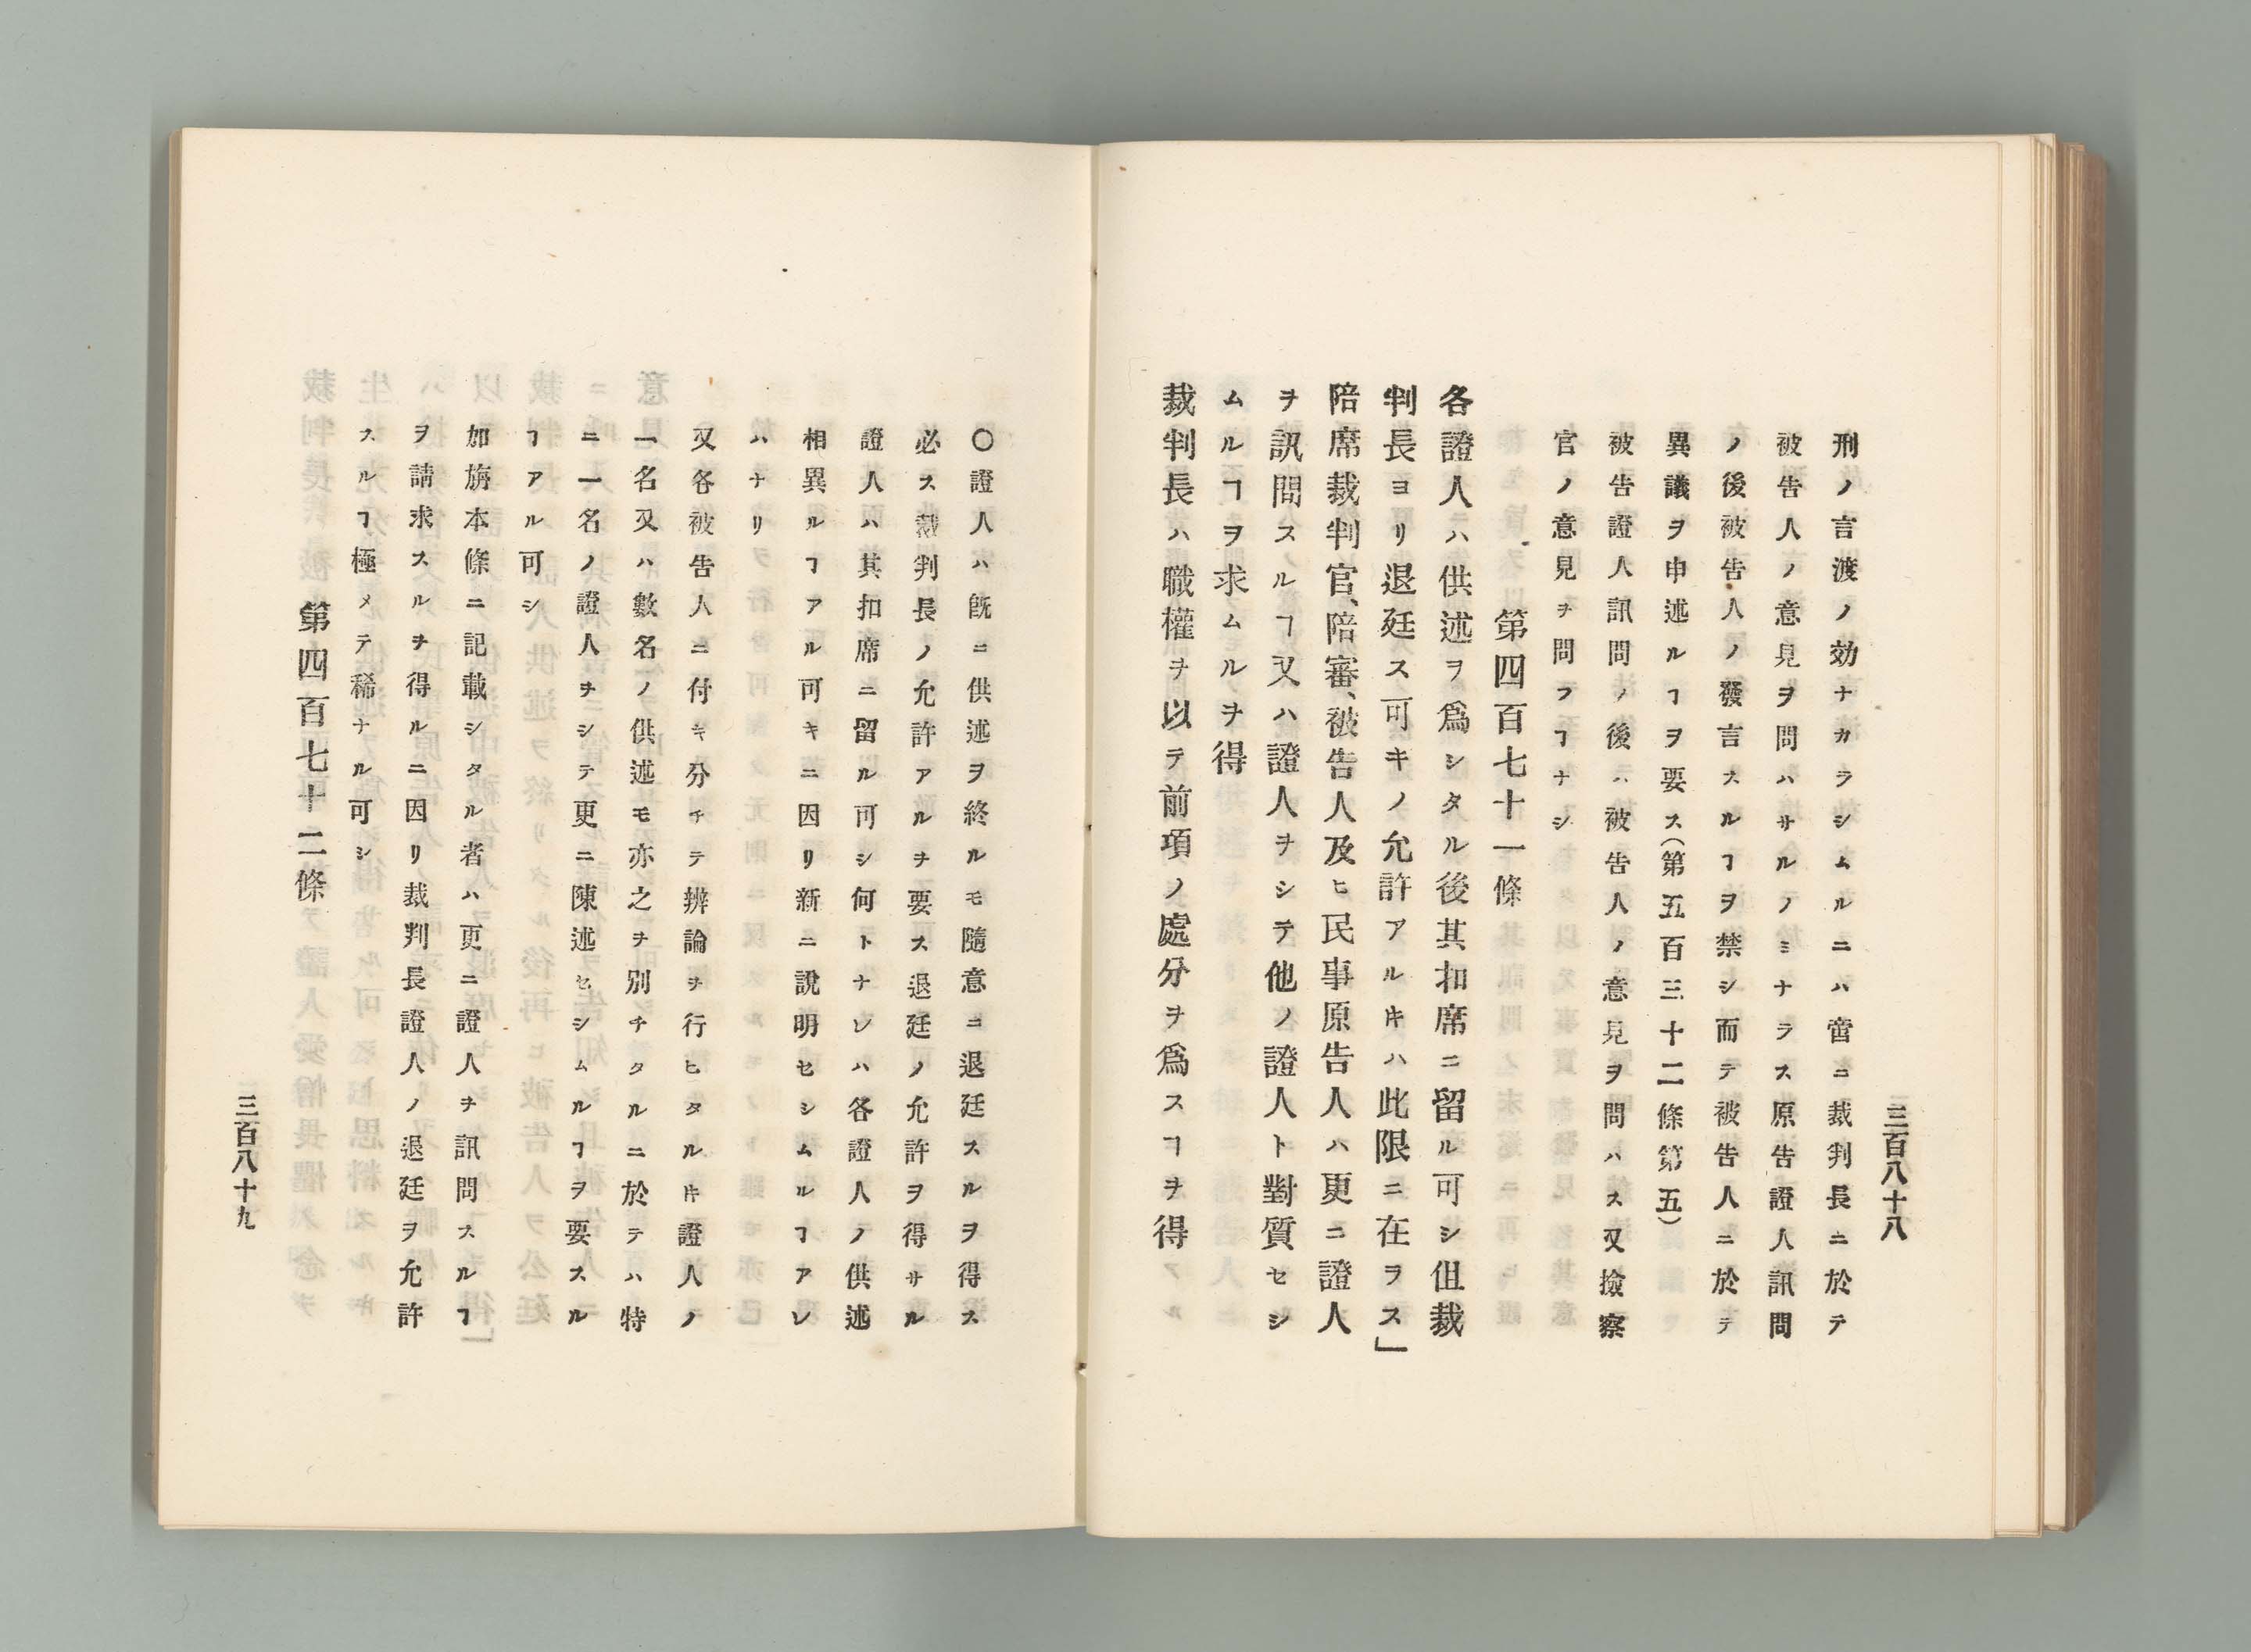 三百八十八
刑ノ言渡ノ効ナカラシムルニハ啻ニ裁判長ニ於テ
被告人ノ意見ヲ問ハサルノミナラス原告證人訊問
ノ後被告人ノ發言スルヿヲ禁シ而テ被告人ニ於テ
異議ヲ申述ルヿヲ要ス(第五百三十二條第五)
被告證人訊問ノ後ハ被告人ノ意見ヲ問ハス又撿察
官ノ意見ヲ問フヿナシ
第四百七十一條
各證人ハ供述ヲ爲シタル後其扣席ニ留ル可シ伹裁
判長ヨリ退廷ス可キノ允許アルキハ此限ニ在ラス」
陪席裁判官、陪審、被告人及ヒ民事原告人ハ更ニ證人
ヲ訊問スルヿ又ハ證人ヲシテ他ノ證人ト對質セシ
ムルヿヲ求ムルヲ得
裁判長ハ職權ヲ以テ前項ノ處分ヲ爲スヿヲ得
〇證人ハ旣ニ供述ヲ終ルモ隨意ニ退廷スルヲ得ス
必ス裁判長ノ允許アルヲ要ス退廷ノ允許ヲ得サル
證人ハ其扣席ニ留ル可シ何トナレハ各證人ノ供述
相異ルヿアル可キニ因リ新ニ說明セシムルヿアレ
ハナリ
又各被告人ニ付キ分チテ辨論ヲ行ヒタルキ證人ノ
一名又ハ數名ノ供述モ亦之ヲ別チタルニ於テハ特
ニ一名ノ證人ヲシテ更ニ陳述セシムルヿヲ要スル
ヿアル可シ
加旃本條ニ記載シタル者ハ更ニ證人ヲ訊問スルヿ
ヲ請求スルヲ得ルニ因リ裁判長證人ノ退廷ヲ允許
スルヿ極メテ稀ナル可シ
第四百七十二條
三百八十九